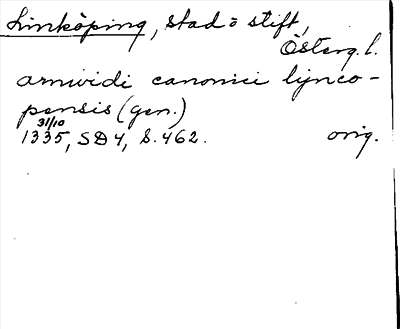 Linköping, stad o stift,
Österg. l.
arnuidi canonici lynco-
pensis (gen.)
31/10
1335, SD 4, s. 462. orig.